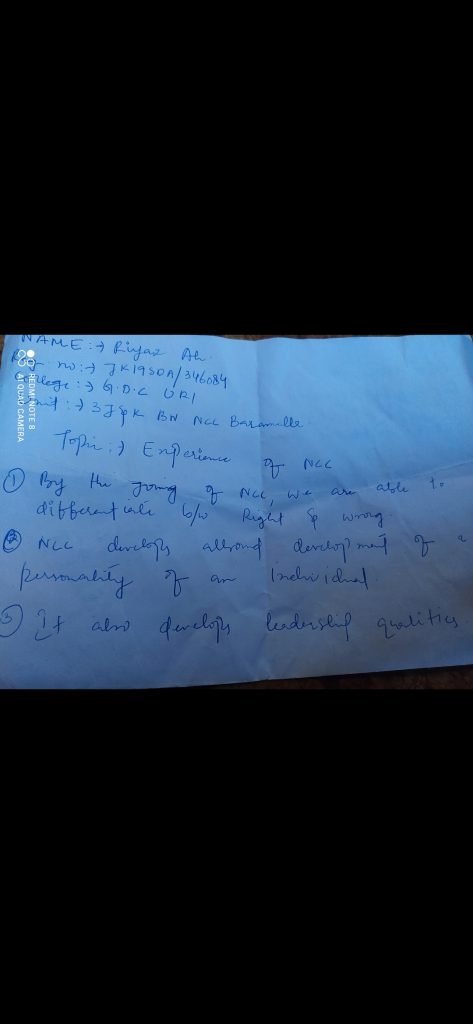 NAME :→ Riyaz Ah.
Reg no :→ JK19SDA/346084
College :→ G.D.C URI
Unit :→ 3 J&K BN NCC Baramulla
Topic :→ Experience of NCC
① By the joing of NCC, we are able to
differentiate b/w Right & wrong
② NCC develops allround development of a
personality of an individual.
③ It also develops leadership qualities.
REDMI NOTE 8
AI QUAD CAMERA